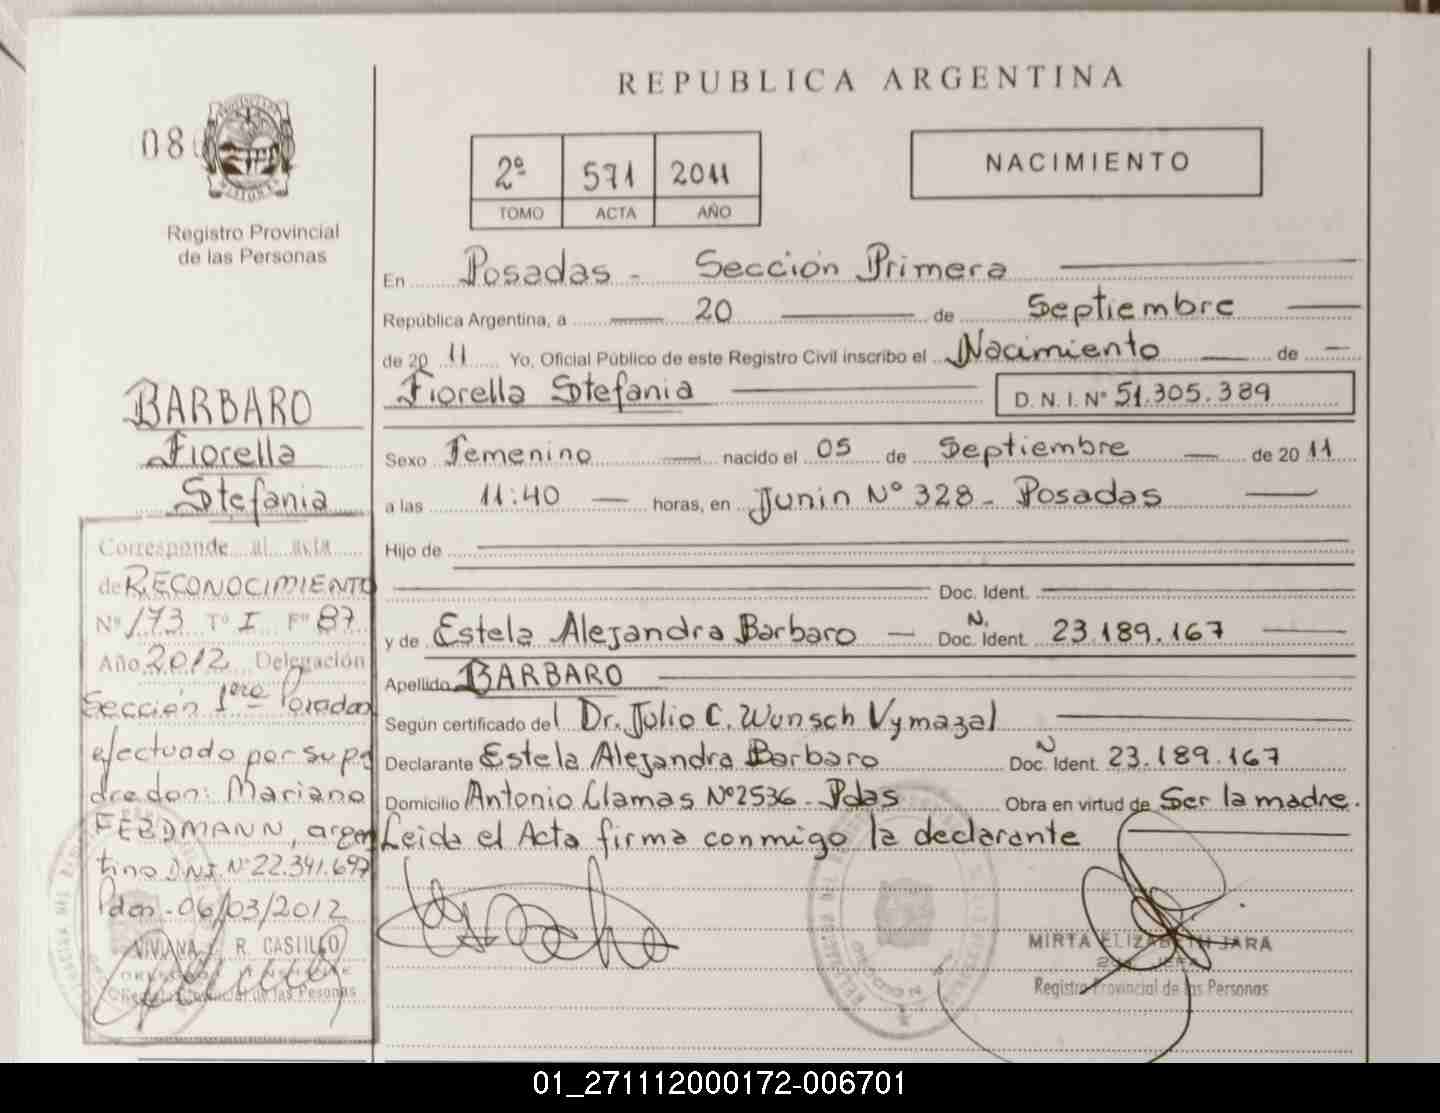 REPUBLICA ARGENTINA
08
2º 571 2011
TOMO ACTA AÑO
NACIMIENTO
Registro Provincial
de las Personas
En Posadas - Sección Primera
República Argentina, a 20 de Septiembre
de 2011 Yo, Oficial Público de este Registro Civil inscribo el Nacimiento de
Fiorella Stefania D.N.I. Nº 51.305.389
BARBARO
Fiorella
Stefania
Sexo Femenino nacido el 05 de Septiembre de 2011
a las 11:40 horas, en Junin Nº 328 - Posadas
Hijo de
Doc. Ident.
y de Estela Alejandra Barbaro N. Doc. Ident. 23.189.167
Apellido BARBARO
Según certificado del Dr. Julio C. Wunsch Vymazal
Declarante Estela Alejandra Barbaro N Doc. Ident. 23.189.167
Domicilio Antonio Llamas Nº 2536 - Pdas Obra en virtud de Ser la madre.
Leida el Acta firma conmigo la declarante
Corresponde al acta
de RECONOCIMIENTO
Nº 173 Tº I Fº 87
Año 2012 Delegación
Sección 1era Posadas
efectuado por su pa
dre don: Mariano
FELDMANN, argen
tino DNI Nº 22.341.697
Pdas - 06/03/2012
VIVIANA R. CASTILLO
Registro Provincial de las Personas
MIRTA ELIZABETH JARA
Registro Provincial de las Personas
01_271112000172-006701